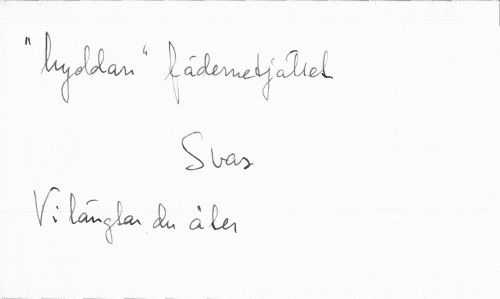 "hyddan" fädernetjället
Svar
Vi längtar du åter